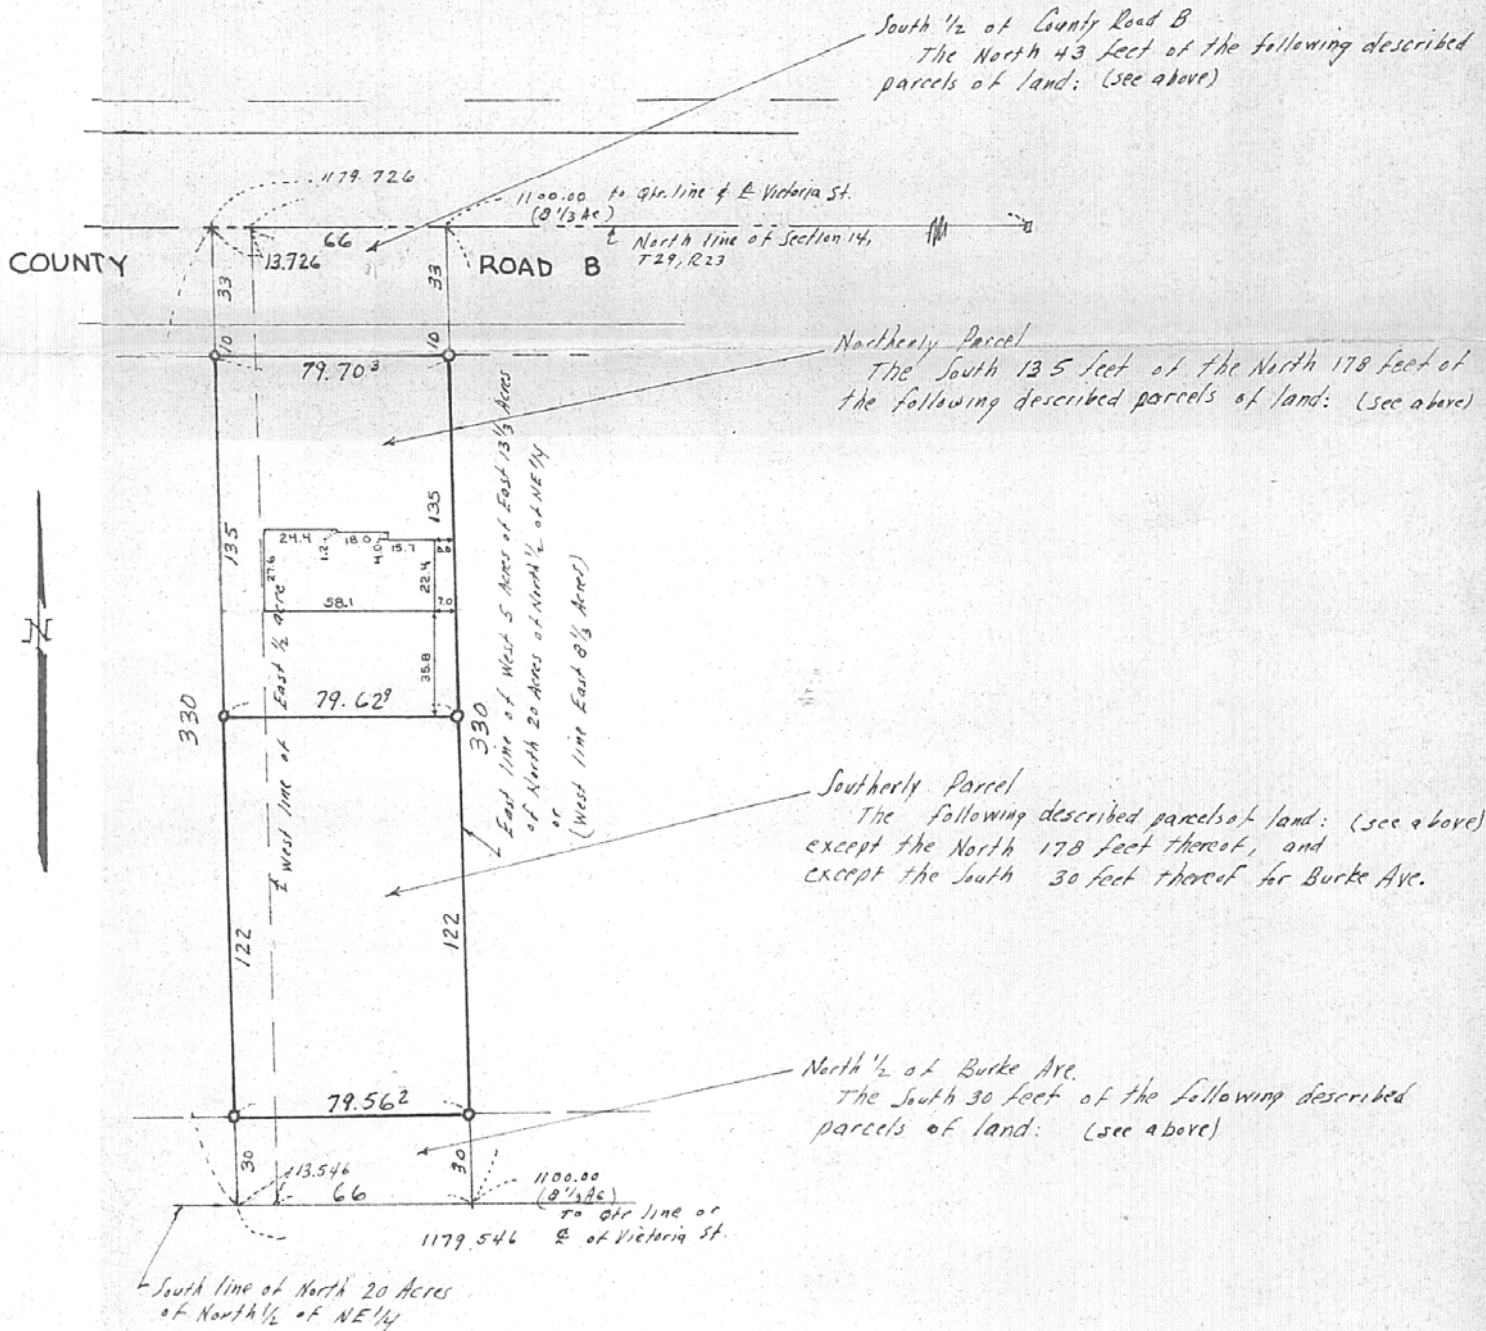 South 1/2 of County Road B
The North 43 feet of the following described
parcels of land: (see above)
1179.726
1100.00 to Qtr. line & ℄ Victoria St.
(8 1/3 Ac)
66
13.726
North line of Section 14,
T29, R23
COUNTY
ROAD B
33
33
10
10
79.70³
Northerly Parcel
The South 135 feet of the North 178 feet of
the following described parcels of land: (see above)
135
135
24.4
1.2
18.0
4.0
15.7
8.8
27.6
22.4
58.1
7.0
35.8
79.62⁹
330
330
West line of East 1/2 acre
East line of West 5 Acres of East 13 1/3 Acres
of North 20 Acres of North 1/2 of NE 1/4
or
(West line East 8 1/3 Acres)
Southerly Parcel
The following described parcels of land: (see above)
except the North 178 feet thereof, and
except the South 30 feet thereof for Burke Ave.
122
122
79.56²
North 1/2 of Burke Ave.
The South 30 feet of the following described
parcels of land: (see above)
30
30
13.546
66
1100.00
(8 1/3 Ac)
To Qtr line or
1179.546 ℄ of Victoria St.
South line of North 20 Acres
of North 1/2 of NE 1/4